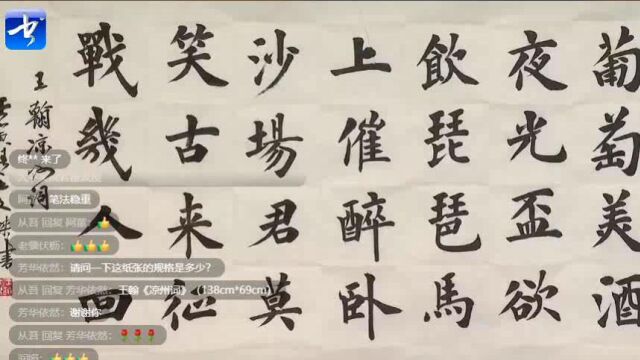 葡萄美酒
夜光盃欲
飲琵琶馬
上催醉卧
沙場君莫
笑古来征
戰幾人回
王翰凉州词
终** 来了
笔法稳重
从吾 回复 👍
老骥伏枥：👍👍👍
芳华依然：请问一下这纸张的规格是多少？
从吾 回复 芳华依然：王翰《凉州词》（138cm*69cm）
芳华依然：谢谢你
从吾 回复 芳华依然：🌹🌹🌹
👍👍👍